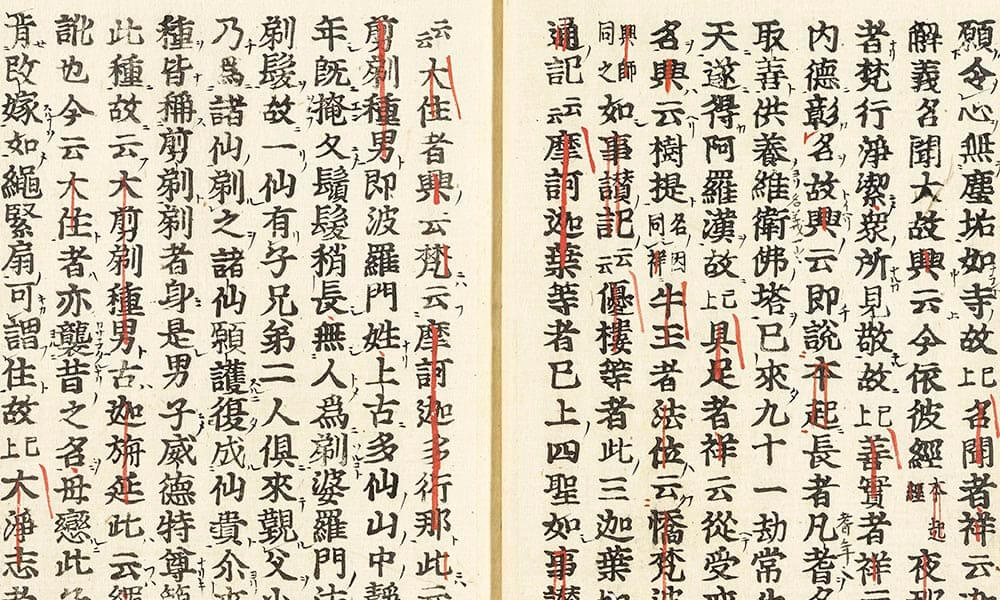 願令心無塵垢如寺故上已名聞者祥云
解義名聞大故興云今依彼經本起經夜耶
者梵行淨潔衆所見敬故上已善實者祥
内德彰名故興云即說本起長者凡耆名
取善供養維衛佛塔已來九十一劫常生
天遂得阿羅漢故上已具足者祥云從受
名興云樹提名因同祥牛王者法位云憍梵波
興師同之如事讃記云云優樓等者此三迦葉
通記云云摩訶迦葉等者已上四聖如事讃
云云大住者興云梵云摩訶迦多行那此云
剪剃種男即波羅門姓上古多仙山中靜
年既掩久鬚髮稍長無人爲剃婆羅門法
剃髮故一仙有子兄弟二人俱來覲父小
乃爲諸仙剃之諸仙願護復成仙貴尒來
種皆稱剪剃剃者身是男子威德特尊
此種故云大剪剃種男古迦旃延此云繩
訛也今云大住者亦襲昔之名毋戀此
肯改嫁如繩緊扇可謂住故上已大淨志者